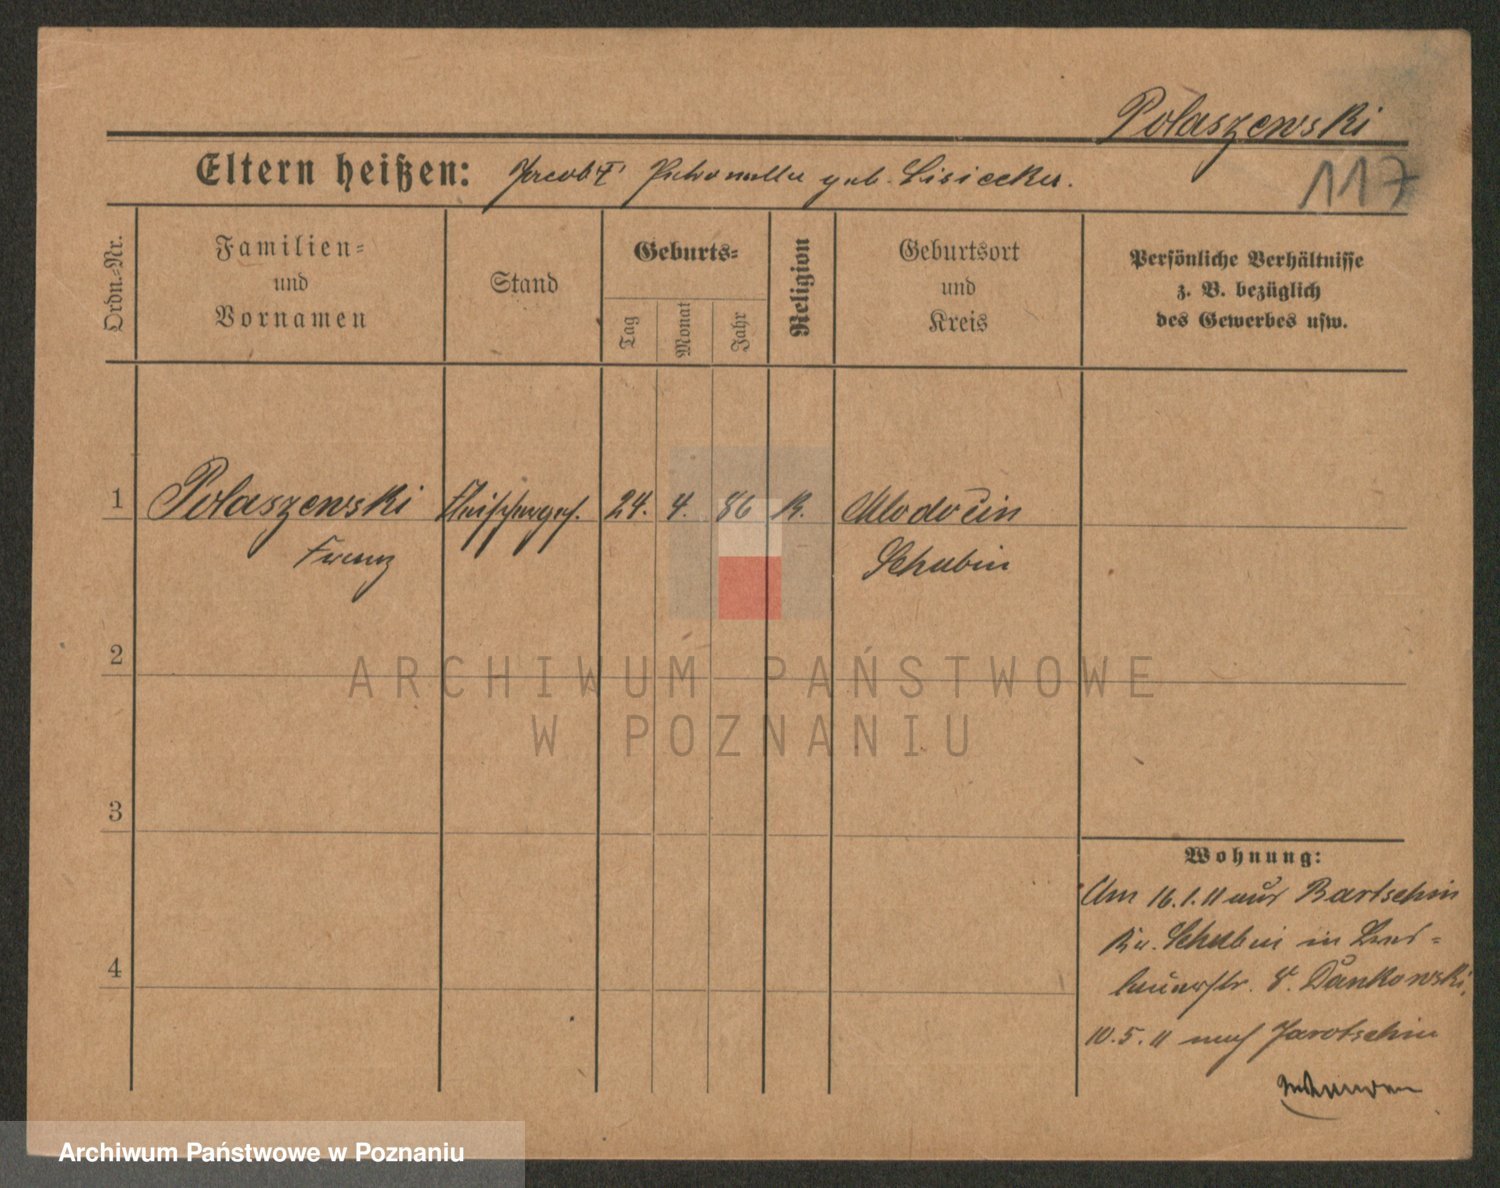 Polaszewski
117
Eltern heißen: Jacob † Petronella geb. Lisiecka.
Ordn.-Nr.
Familien-
und
Vornamen
Stand
Geburts-
Tag
Monat
Jahr
Religion
Geburtsort
und
Kreis
Persönliche Verhältnisse
z. B. bezüglich
des Gewerbes usw.
1 Polaszewski Fleischerges. 24. 4. 86 K. Mlodocin
Franz Schubin
2
3
4
Wohnung:
Am 16.1.11 aus Bartschin
Kr. Schubin in
8. Dankowski,
10.5.11 nach Jarotschin
ARCHIWUM PAŃSTWOWE
W POZNANIU
Archiwum Państwowe w Poznaniu